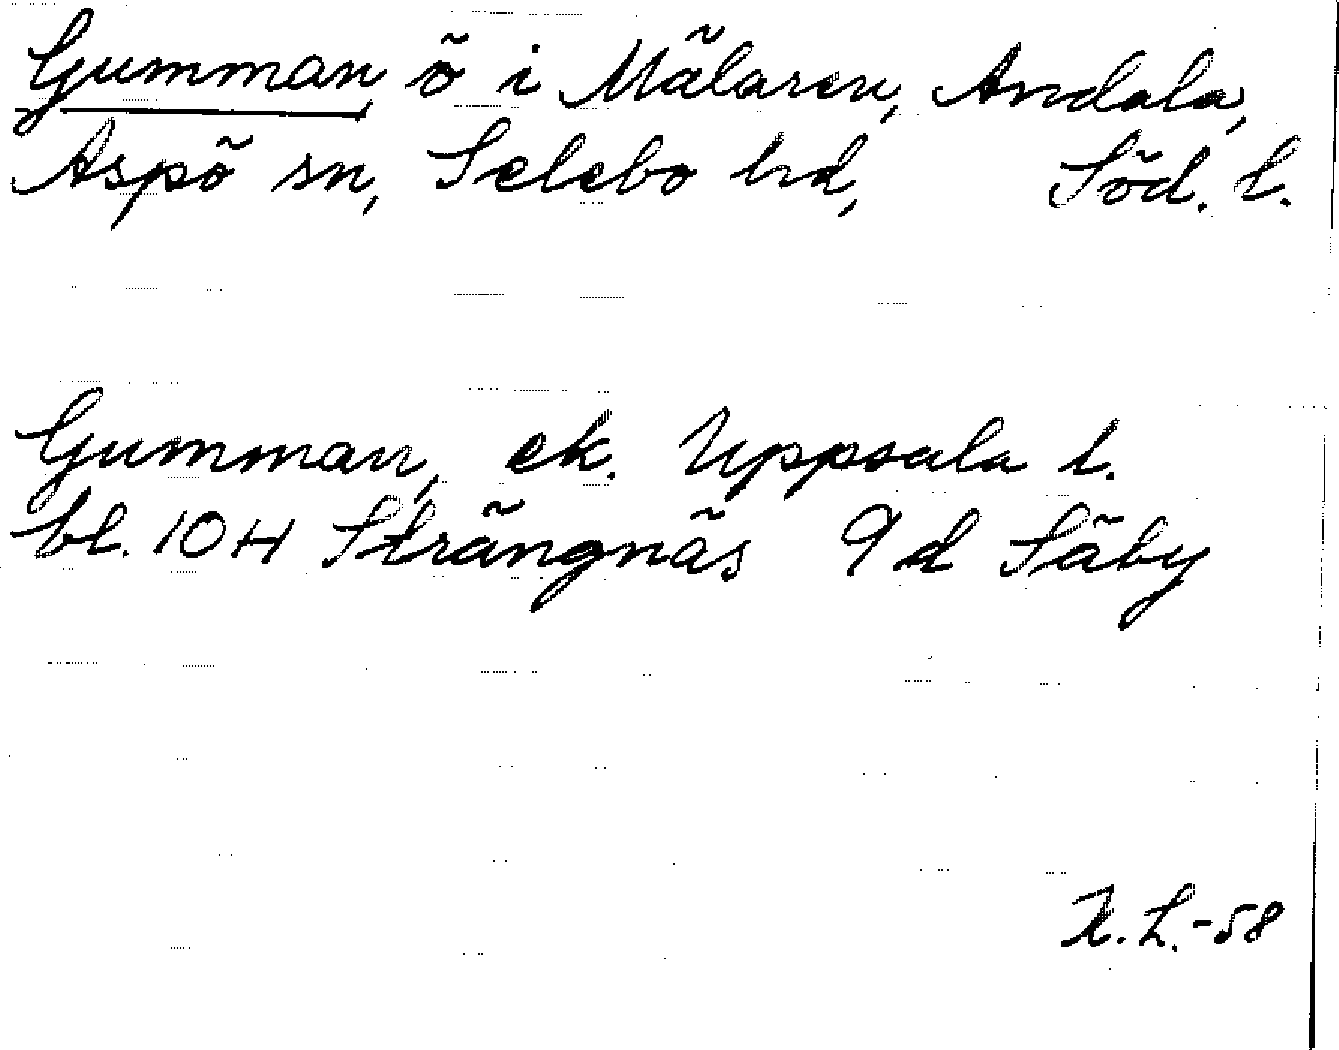 Gumman, ö i Mälaren, Andala,
Aspö sn, Selebo hd, Söd. l.
Gumman, ek. Uppsala l.
bl. 10 H Strängnäs 9 d Säby
K. L. -58